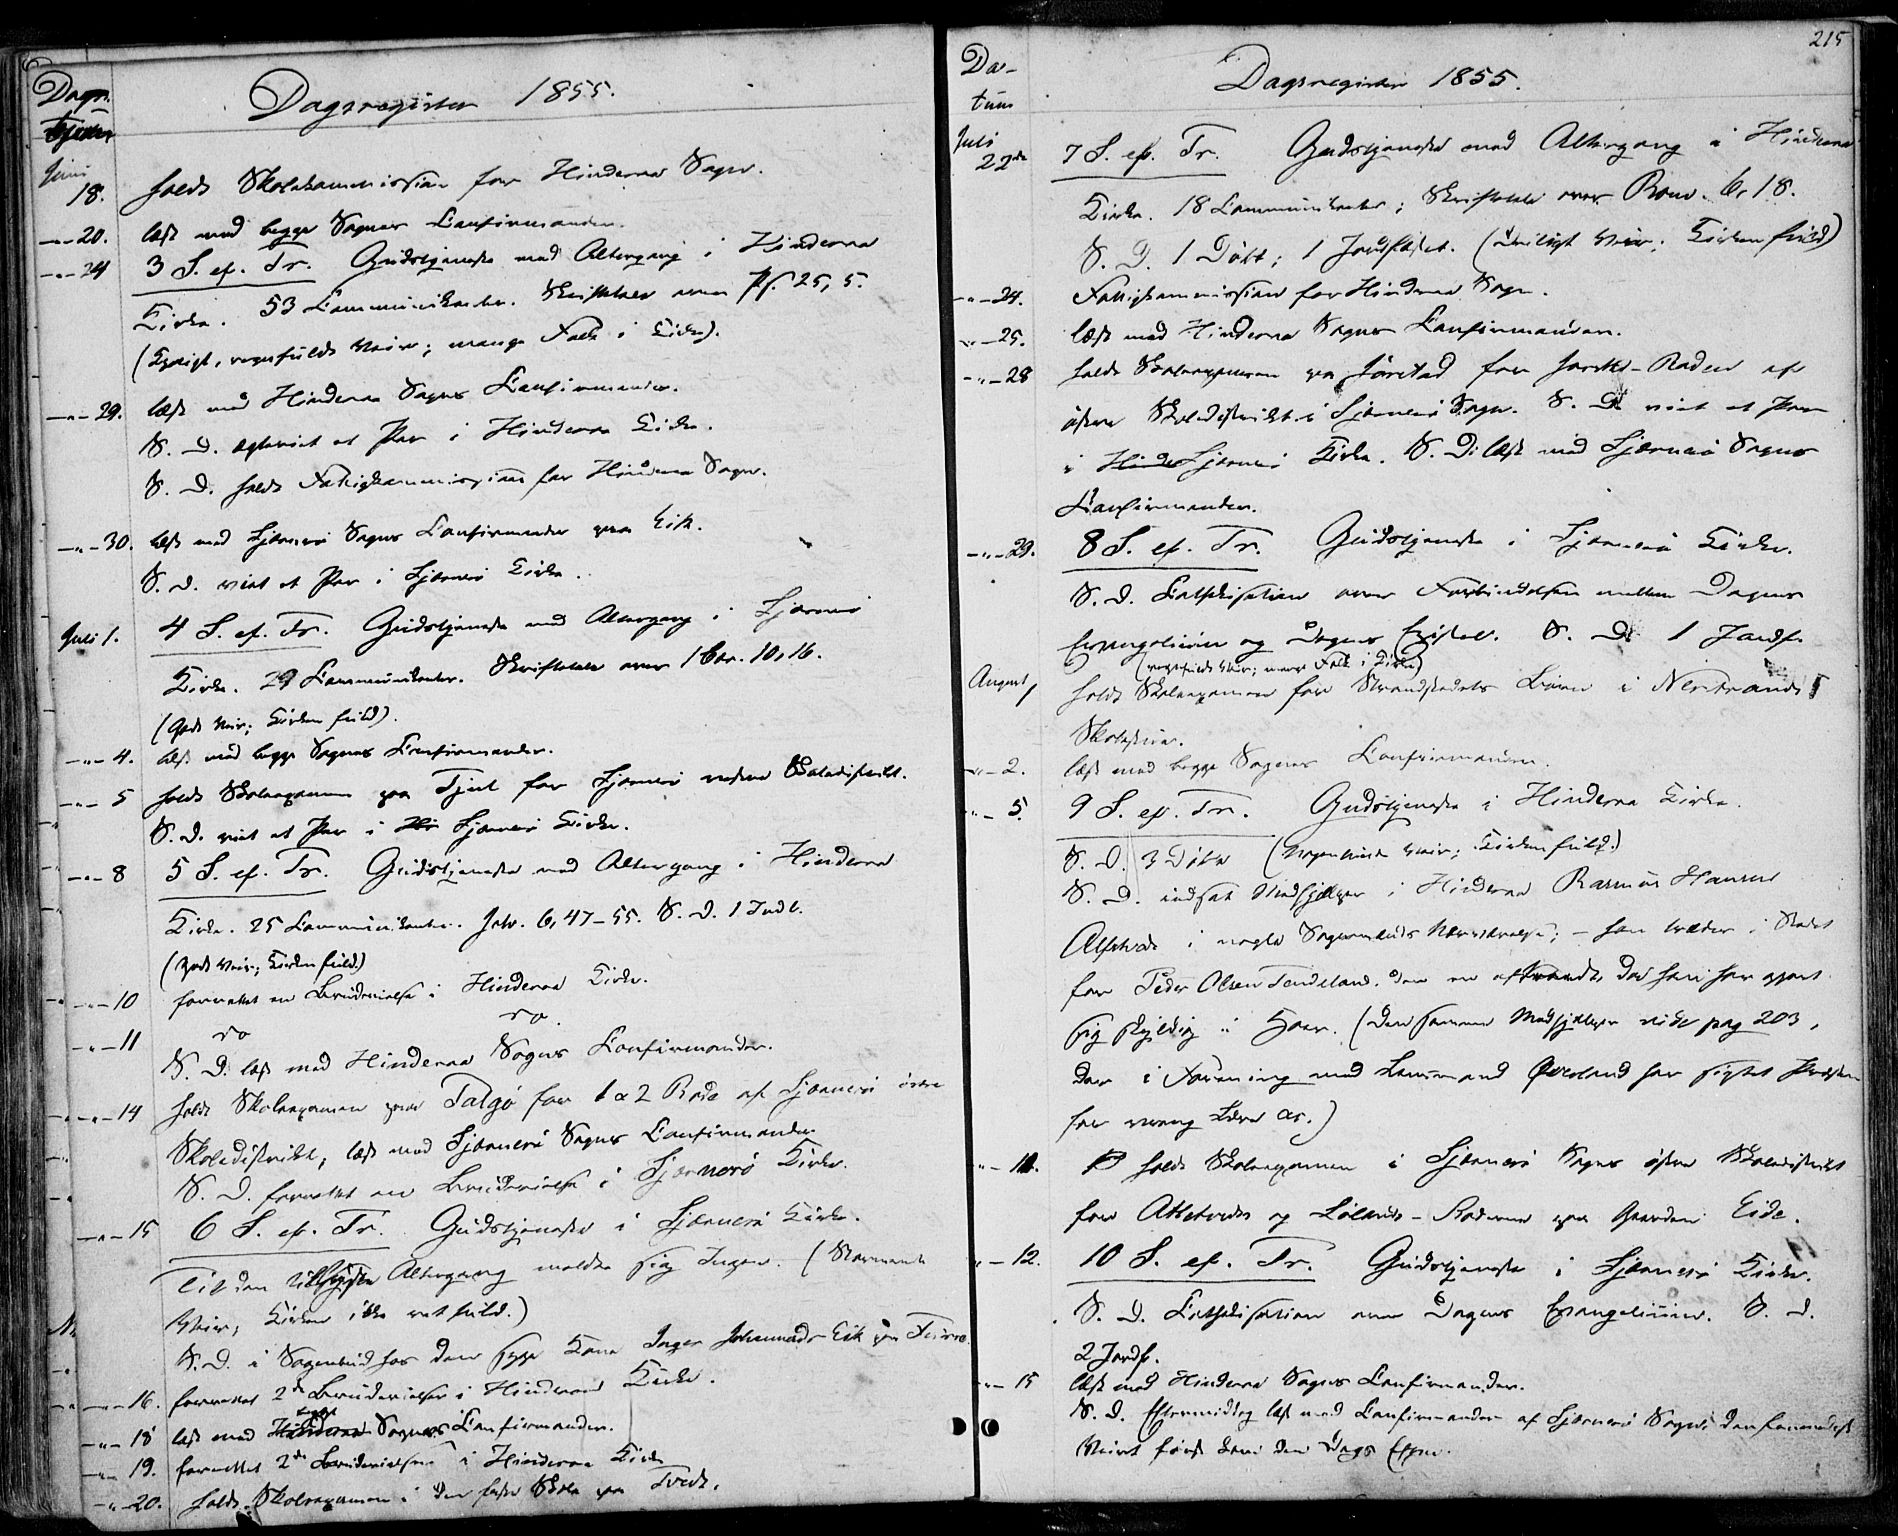 Dagsregister 1855.
Juni
18. holdt Skolekommission for Hinderaa Sogn.
—"—20. læst med begge Sognes Confirmander.
—"—24 3 S. ef. Tr. Gudstjeneste med Altergang i Hinderaa
Kirke. 53 Communikanter. Skriftetale over Ps. 25, 5.
(Kjøligt, regnfuldt Veir; mange Folk i Kirke).
—"—29. læst med Hinderaa Sogns Confirmander.
S. D. ægteviet et Par i Hinderaa Kirke.
S. D. holdt Fattigkommission for Hinderaa Sogn.
—"—30. læst med Sjærnerø Sogns Confirmander paa Eik.
S. D. viet et Par i Sjærnerø Kirke.
Juli 1. 4 S. ef. Tr. Gudstjeneste med Altergang i Sjærnerø
Kirke. 29 Communikanter. Skriftetale over 1 Cor. 10, 16.
(Godt Veir; Kirken fuld).
—"—4. læst med begge Sognes Confirmander.
—"—5 holdt Skoleexamen paa Tjul for Sjærnerø vestre Skoledistrikt.
S. D. viet et Par i Sjærnerø Kirke.
—"—8 5 S. ef. Tr. Gudstjeneste med Altergang i Hinderaa
Kirke. 25 Communikanter. Joh. 6, 47–55. S. D. 1 Indl.
(godt Veir; Kirken fuld)
—"—10 forrettet en Brudevielse i Hinderaa Kirke.
—"—11 do do.
S. D. læst med Hinderaa Sogns Confirmander.
—"—14 holdt Skoleexamen paa Talgø for 1 & 2 Rode af Sjærnerø østre
Skoledistrikt; læst med Sjærnerø Sogns Confirmander
S. D. forrettet en Brudevielse i Sjærnerø Kirke.
—"—15 6 S. ef. Tr. Gudstjeneste i Sjærnerø Kirke.
Til den tillyste Altergang meldte sig Ingen. (Stormende
Veir; Kirken ikke ret fuld.)
S. D. i Sognebud hos den syge Kone Inger Johannesd. Eik paa
—"—16. forrettet 2de Brudevielser i Hinderaa Kirke.
—"—18 læst med begge Sognes Confirmander.
—"—19. forrettet 2de Brudevielser i Hinderaa Kirke
—"—20. holdt Skoleexamen i den faste Skole paa Tvedt.
215
Da-
tum
Dagsregister 1855.
Juli
22de 7 S. ef. Tr. Gudstjeneste med Altergang i Hinderaa
Kirke. 18 Communikanter; Skriftetale over Rom. 6, 18.
S. D. 1 Døbt; 1 Jordfæstet. (Veir; Kirken fuld)
—"—24. Fattigkommission for Hinderaa Sogn.
—"—25. læst med Hinderaa Sogns Confirmander.
—"—28 holdt Skoleexamen paa for Roden af
østre Skoledistrikt i Sjærnerø Sogn. S. D. viet et Par
i Sjærnerø Kirke. S. D. læst med Sjærnerø Sogns
Confirmander.
—"—29. 8 S. ef. Tr. Gudstjeneste i Sjærnerø Kirke.
S. D. Cathekisation over Forbindelsen mellem Dagens
Evangelium og Dagens Epistel. S. D. 1 Jordf.
(regnfuldt Veir; mange Folk i Kirke)
August 1 holdt Skoleexamen for Strandstedets Børn i Nerstrands
Skolestue.
—"—2. læst med begge Sognes Confirmander.
—"—5. 9 S. ef. Tr. Gudstjeneste i Hinderaa Kirke.
S. D. 3 Døbte (Veir; Kirken fuld.)
S. D. indsat Medhjælper i Hinderaa Rasmus Hansen
i nogle Sognemænds Nærværelse; – han træder i Stedet
for Peder Olsen Tendeland, den er aftraadt, da han har gjort
sig skyldig i Hoer. (den samme Medhjælper vide pag 203,
der i Forening med Lensmand Øverland har sigtet Præsten
for vrang Lære &c.)
—"—11. holdt Skoleexamen i Sjærnerø Sogns østre Skoledistrikt
for og Roderne paa Gaarden Eide.
—"—12. 10 S. ef. Tr. Gudstjeneste i Sjærnerø Kirke.
S. D. Cathekisation over Dagens Evangelium. S. D.
2 Jordf.
—"—15 læst med Hinderaa Sogns Confirmander.
S. D. Eftermiddag læst med Confirmander af Sjærnerø Sogn,
Veiret først den Dags Eftm.